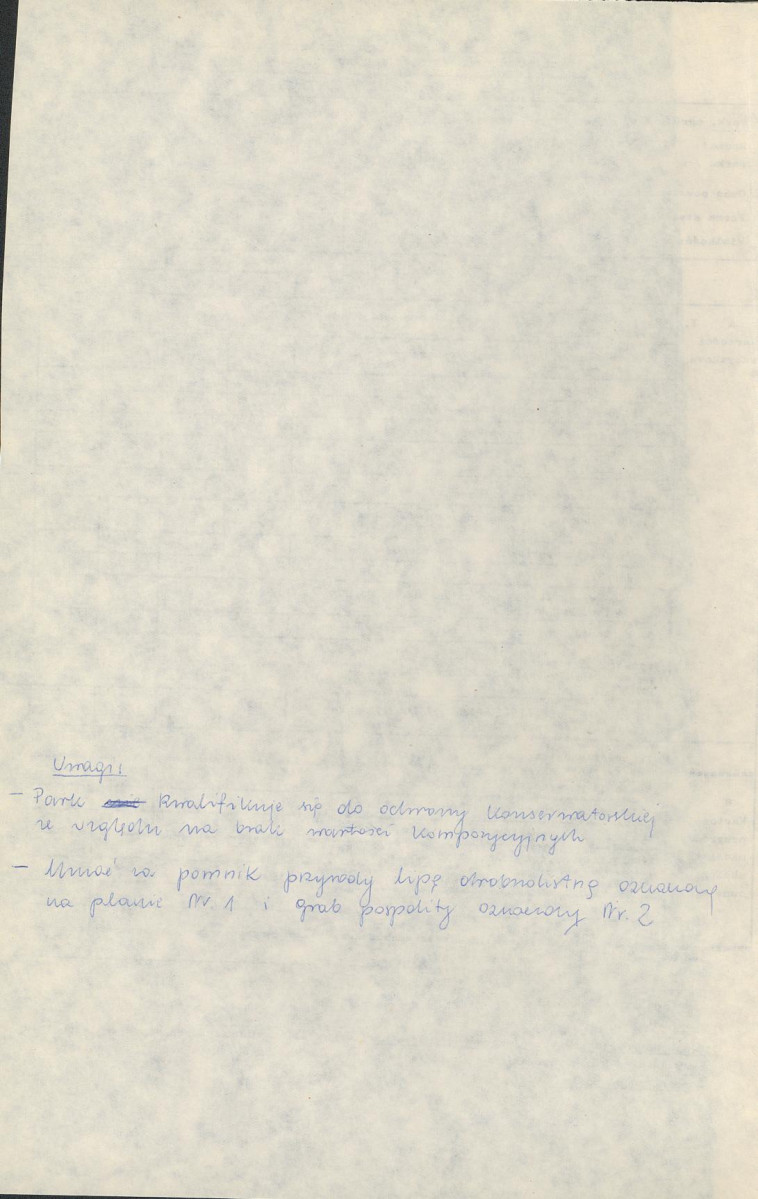 Uwagi:
- Park kwalifikuje się do ochrony konserwatorskiej
ze względu na brak wartości kompozycyjnych
- Uznać za pomnik przyrody lipę drobnolistną oznaczoną
na planie Nr. 1 i grab pospolity oznaczony Nr. 2